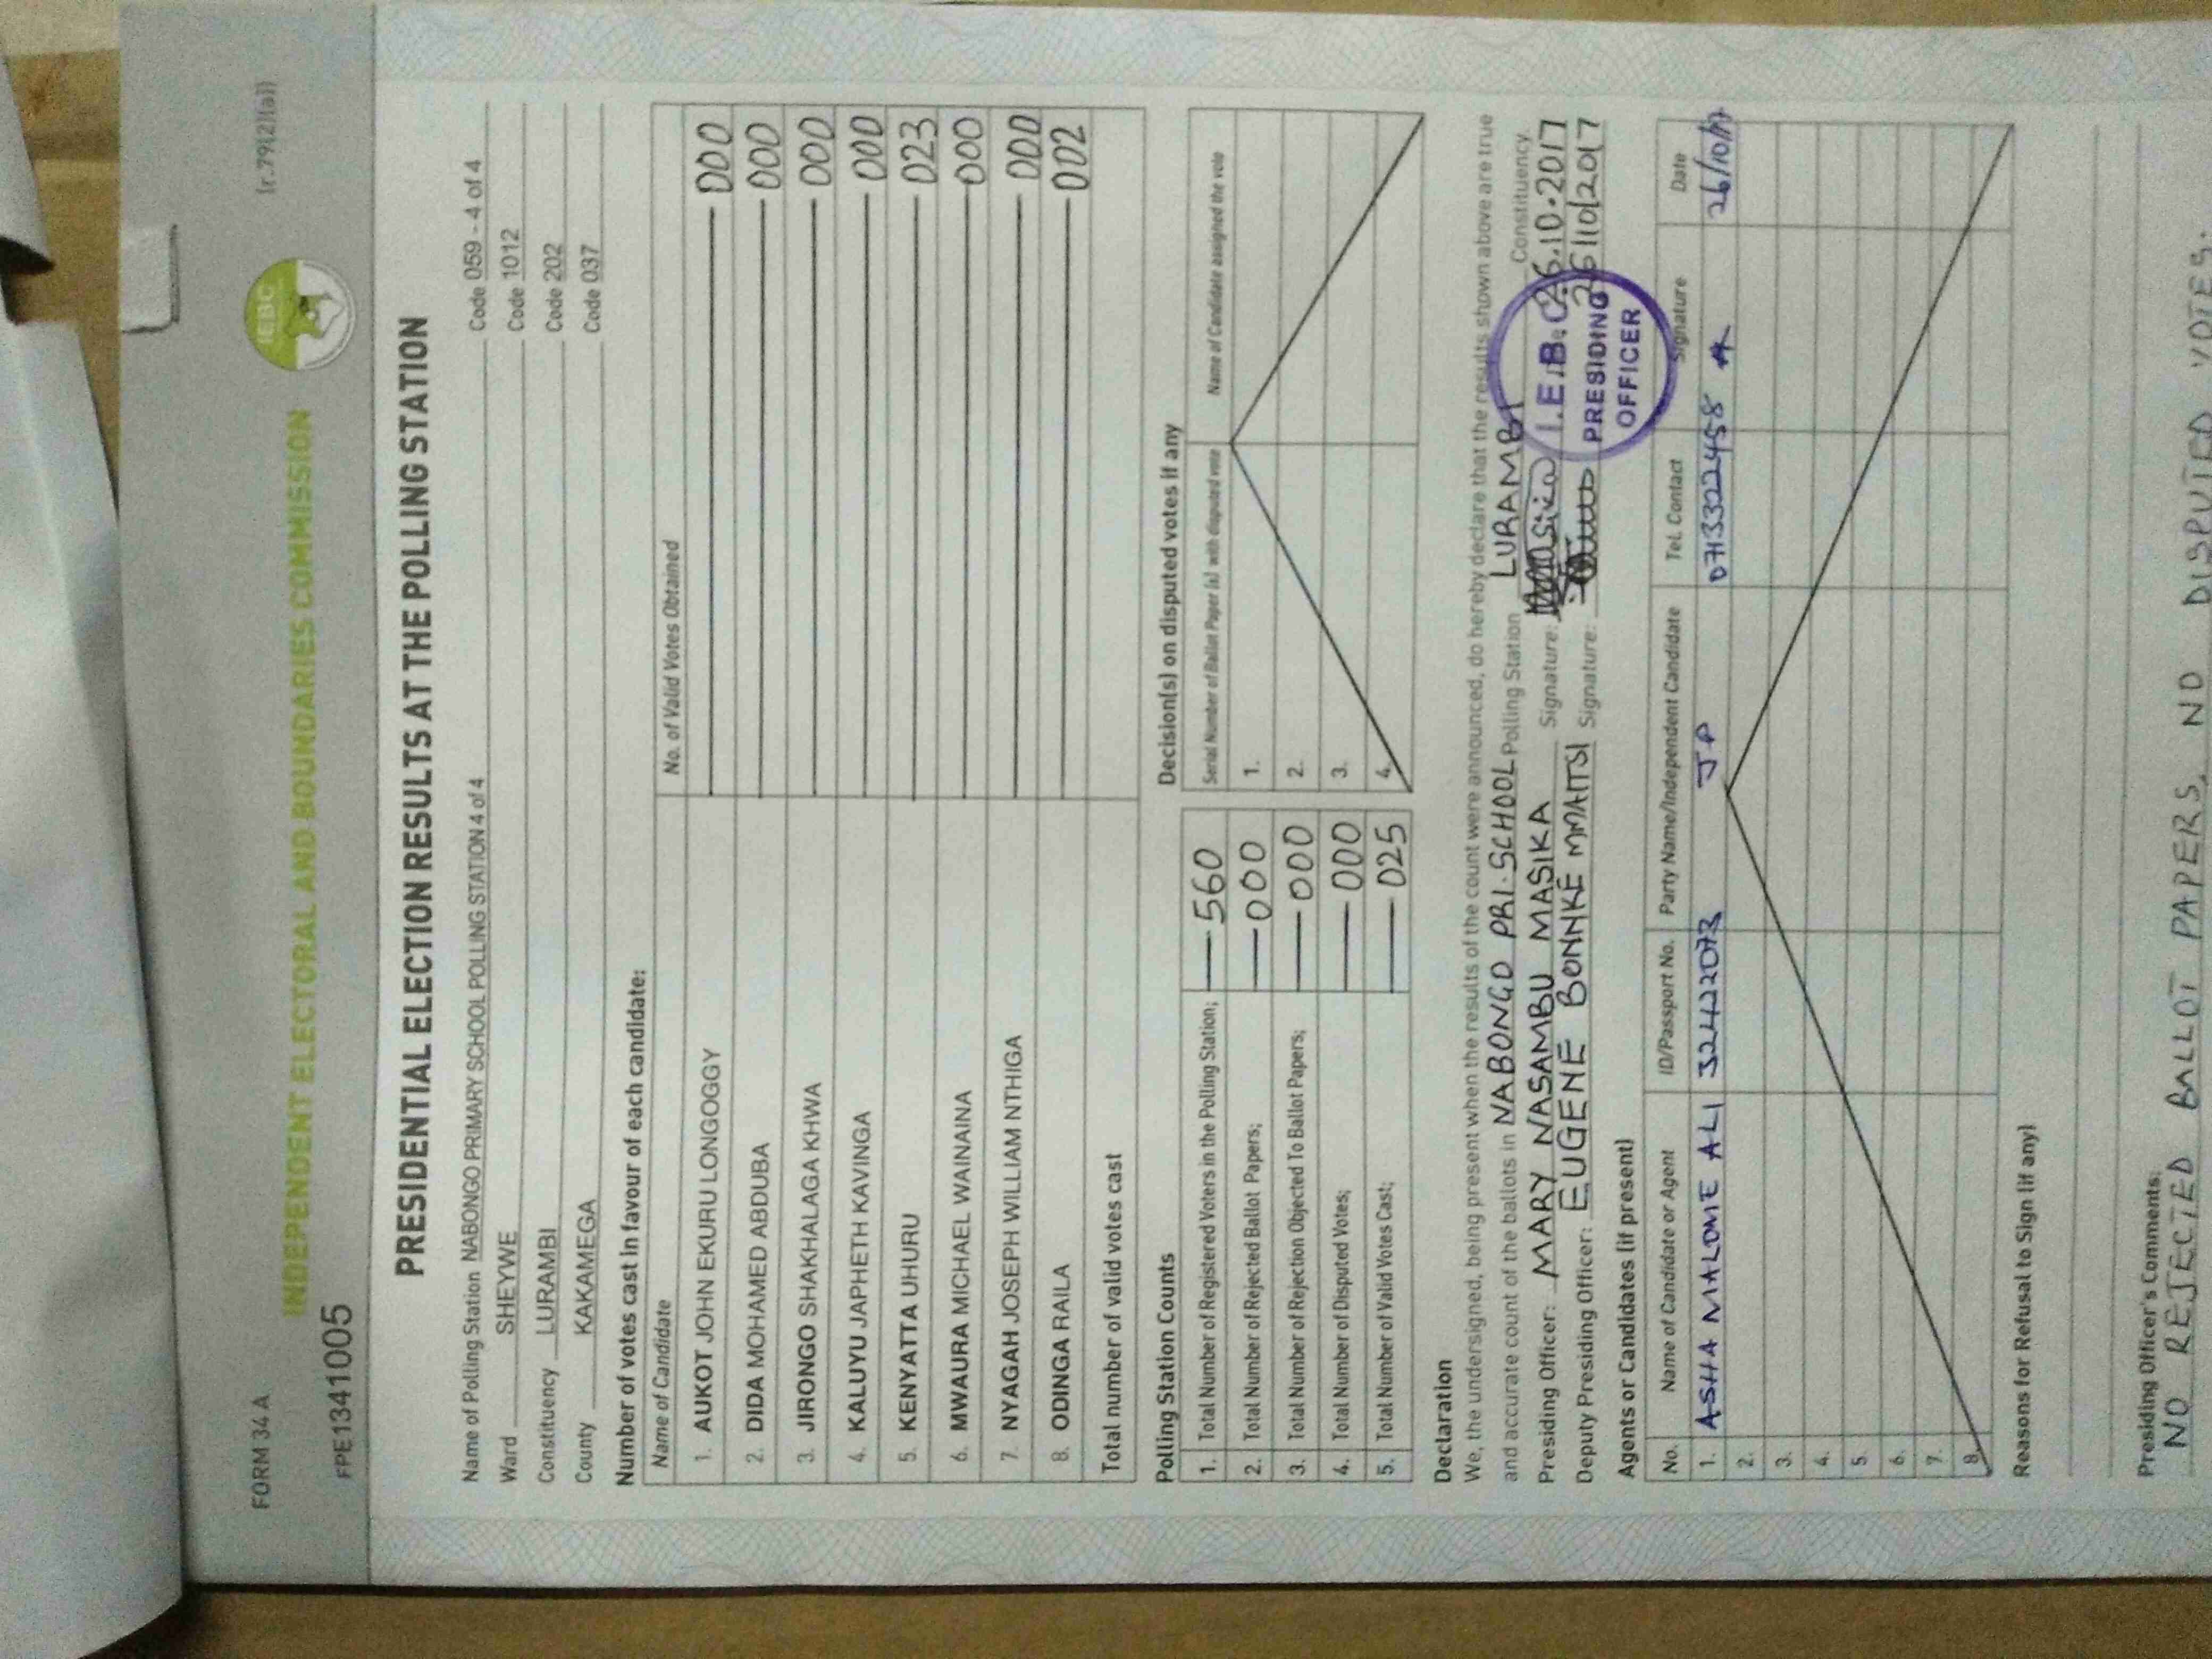 FORM 34 A
(r.79(2)(a))
INDEPENDENT ELECTORAL AND BOUNDARIES COMMISSION
IEBC
FPE1341005
PRESIDENTIAL ELECTION RESULTS AT THE POLLING STATION
Name of Polling Station NABONGO PRIMARY SCHOOL POLLING STATION 4 of 4 Code 059 - 4 of 4
Ward SHEYWE Code 1012
Constituency LURAMBI Code 202
County KAKAMEGA Code 037
Number of votes cast in favour of each candidate:
Name of Candidate No. of Valid Votes Obtained
1. AUKOT JOHN EKURU LONGOGGY 000
2. DIDA MOHAMED ABDUBA 000
3. JIRONGO SHAKHALAGA KHWA 000
4. KALUYU JAPHETH KAVINGA 000
5. KENYATTA UHURU 023
6. MWAURA MICHAEL WAINAINA 000
7. NYAGAH JOSEPH WILLIAM NTHIGA 000
8. ODINGA RAILA 002
Total number of valid votes cast
Polling Station Counts
1. Total Number of Registered Voters in the Polling Station; 560
2. Total Number of Rejected Ballot Papers; 000
3. Total Number of Rejection Objected To Ballot Papers; 000
4. Total Number of Disputed Votes; 000
5. Total Number of Valid Votes Cast; 025
Decision(s) on disputed votes if any
Serial Number of Ballot Paper (s) with disputed vote Name of Candidate assigned the vote
1.
2.
3.
4.
Declaration
We, the undersigned, being present when the results of the count were announced, do hereby declare that the results shown above are true
and accurate count of the ballots in NABONGO PRI-SCHOOL Polling Station LURAMBI Constituency
Presiding Officer: MARY NASAMBU MASIKA Signature: 26.10.2017
Deputy Presiding Officer: EUGENE BONNKE MMAITSI Signature: 26/10/2017
I.E.B.C
PRESIDING
OFFICER
Agents or Candidates (if present)
No. Name of Candidate or Agent ID/Passport No. Party Name/Independent Candidate Tel. Contact Signature Date
1. ASHA MALOME ALI 32422073 JP 26/10/17
2.
3.
4.
5.
6.
7.
8.
Reasons for Refusal to Sign (if any)
Presiding Officer's Comments:
NO REJECTED BALLOT PAPERS, NO DISPUTED VOTES.